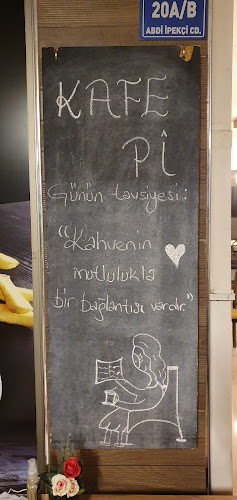 20A/B
ABDİ İPEKÇİ CD.
KAFE
Pİ
Günün tavsiyesi:
"Kahvenin
mutlulukla
bir bağlantısı vardır."